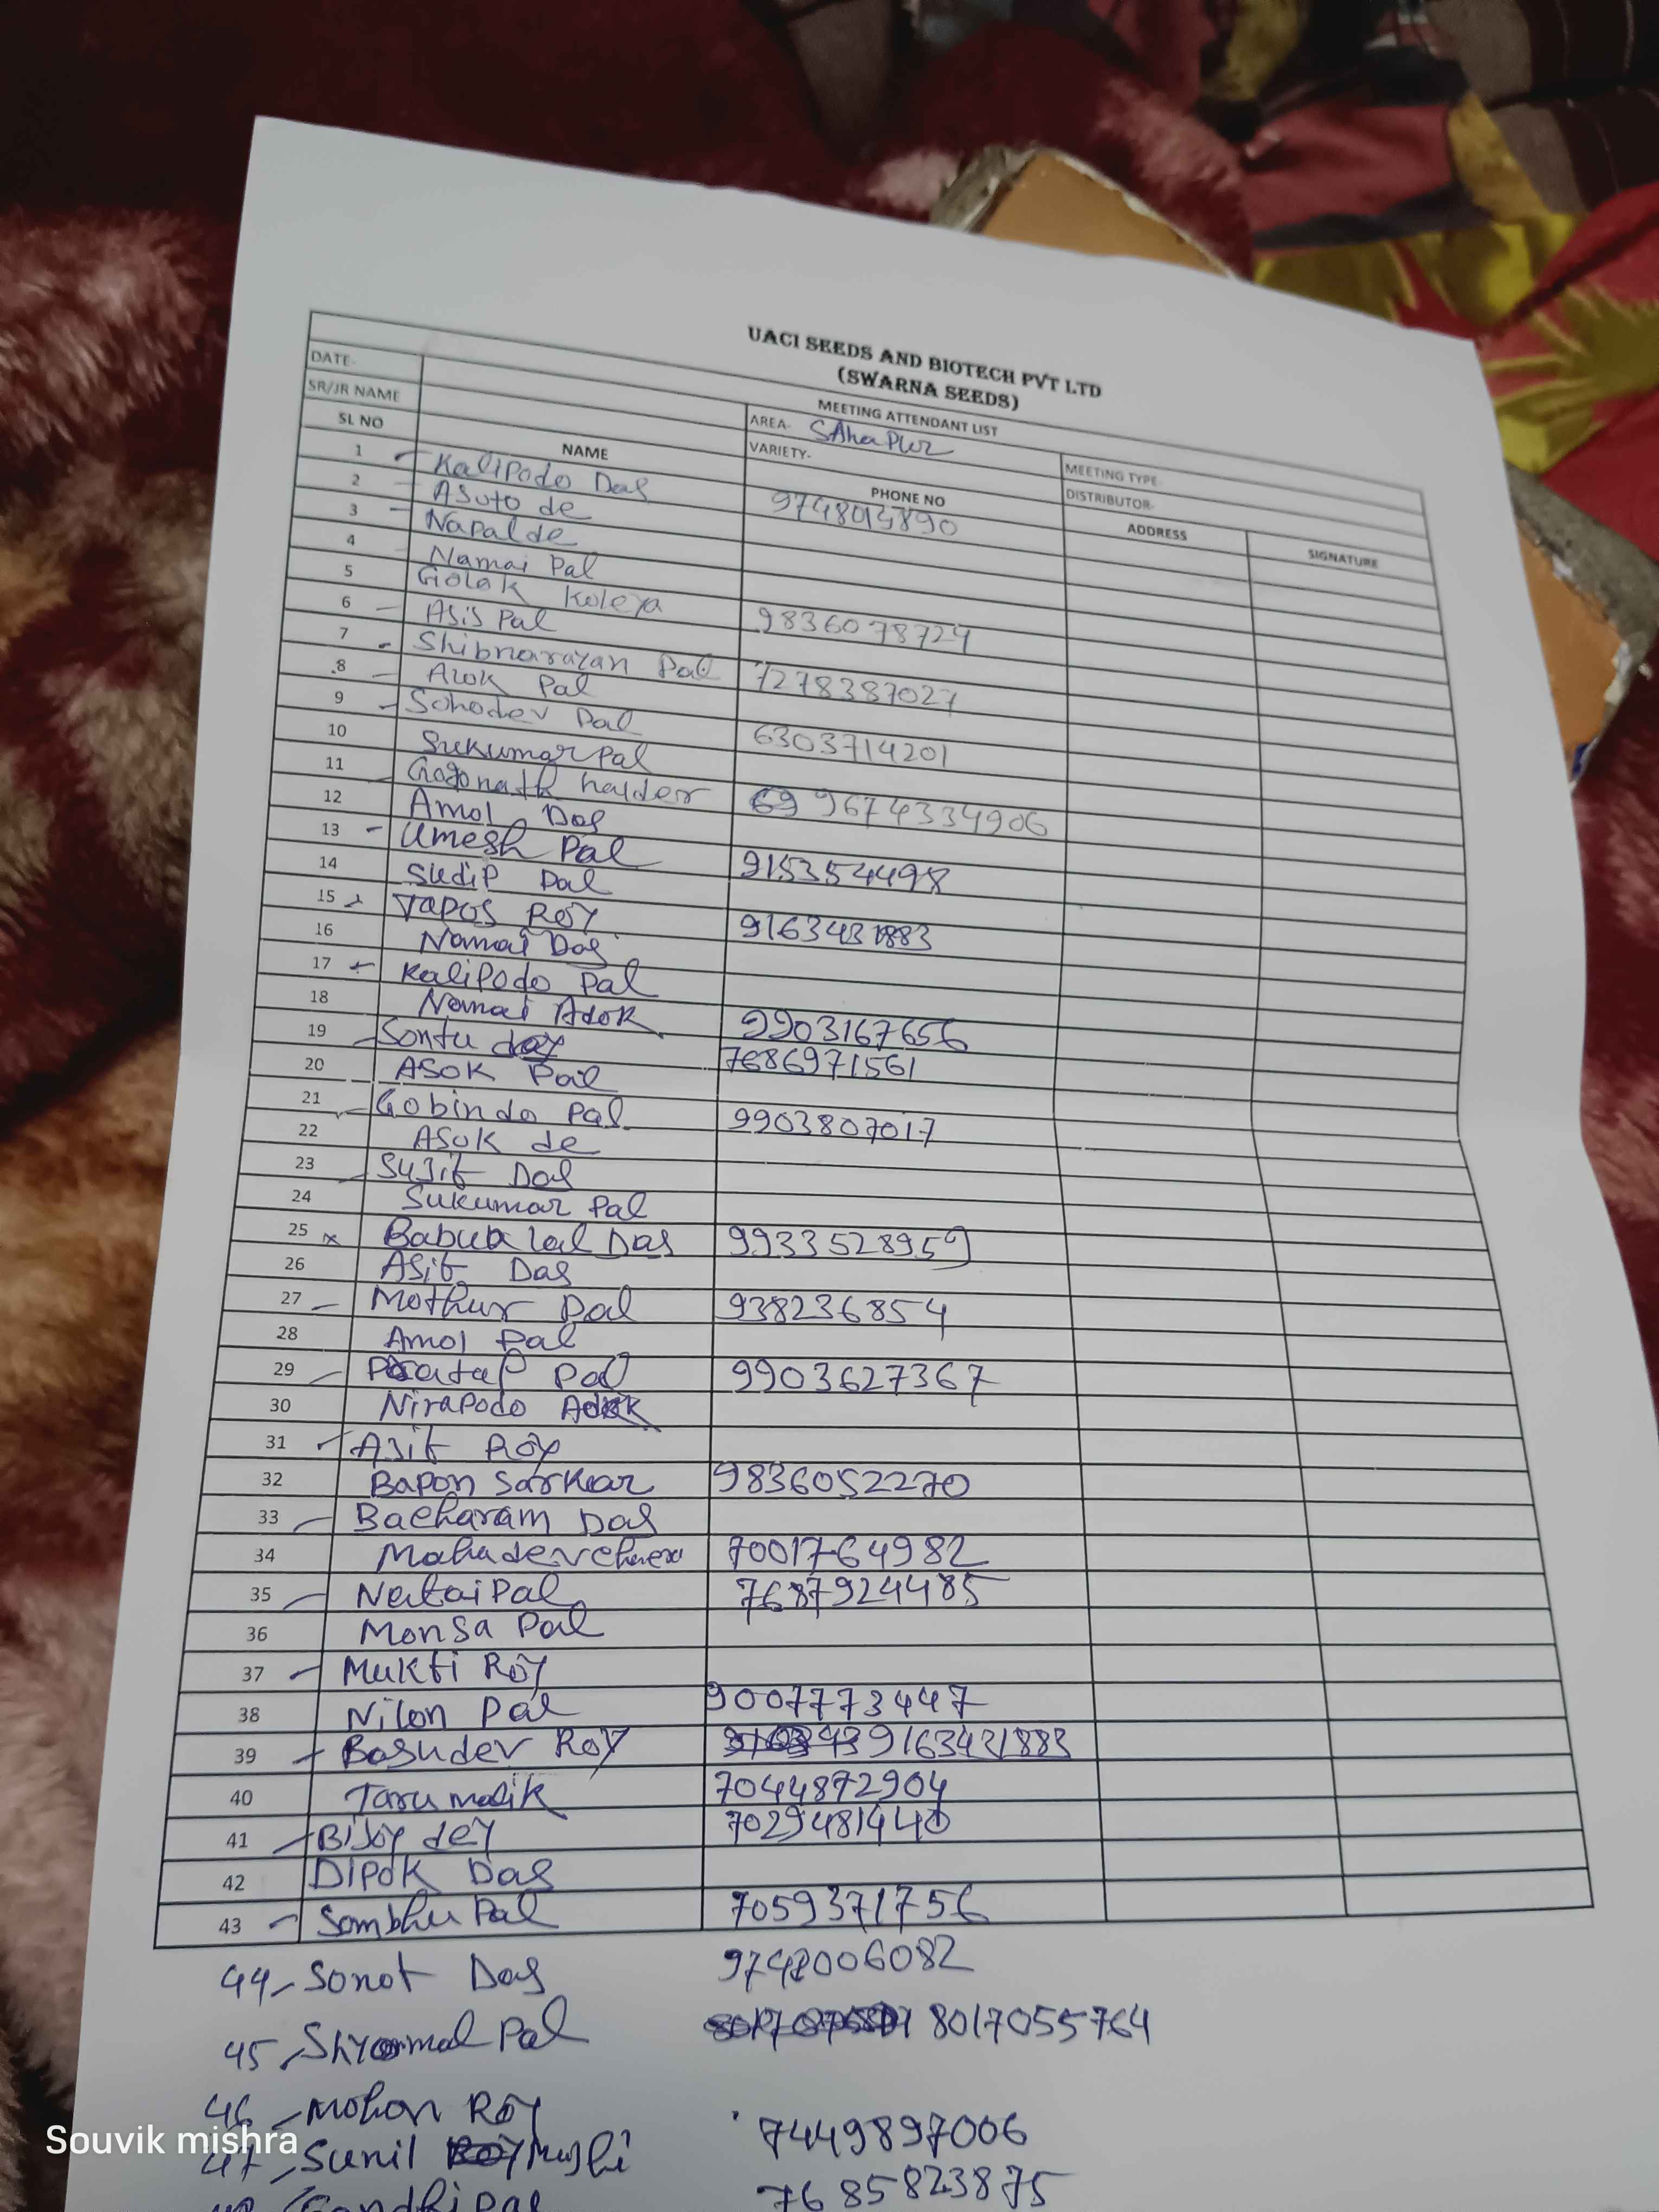 UACI SEEDS AND BIOTECH PVT LTD
(SWARNA SEEDS)
MEETING ATTENDANT LIST
DATE- AREA- SAhaPur MEETING TYPE-
SR/JR NAME VARIETY- DISTRIBUTOR-
SL NO NAME PHONE NO ADDRESS SIGNATURE
1 Kalipodo Das 9748014890
2 Asuto de
3 Napal de
4 Namai Pal
5 Golak Koleya 9836078724
6 Asis Pal
7 Shibnarayan Pal 7278387027
8 Alok Pal
9 Sohodev Pal 6303714201
10 Sukumar Pal
11 Gogonath halder 9674334906
12 Amol Das
13 Umesh Pal 9153354498
14 Sudip Pal
15 Tapos Roy 9163431883
16 Namai Das
17 Kalipodo Pal
18 Namai Adok 9903167656
19 Sontu dey 7686971561
20 Asok Pal
21 Gobindo Pal 9903807017
22 Asok de
23 Sujit Das
24 Sukumar Pal
25 Babu lal Das 9933528959
26 Asit Das
27 Mothur Pal 938236854
28 Amol Pal
29 Pratap Pal 9903627367
30 Nirapodo Adok
31 Asit Roy
32 Bapon Sarkar 9836052270
33 Bacharam Das
34 Mahadev 7001764982
35 Netai Pal 7687924485
36 Monsa Pal
37 Mukti Roy
38 Nilon Pal 9007773447
39 Basudev Roy 9163431883
40 Taru malik 7044872904
41 Bijoy dey 7029481440
42 Dipok Das
43 Sombhu Pal 7059371756
44 Sonot Das 9748006082
45 Shyamal Pal 8017055764
46 Mohon Roy 7449897006
47 Sunil 7685823875
Gandhi Pal
Souvik mishra